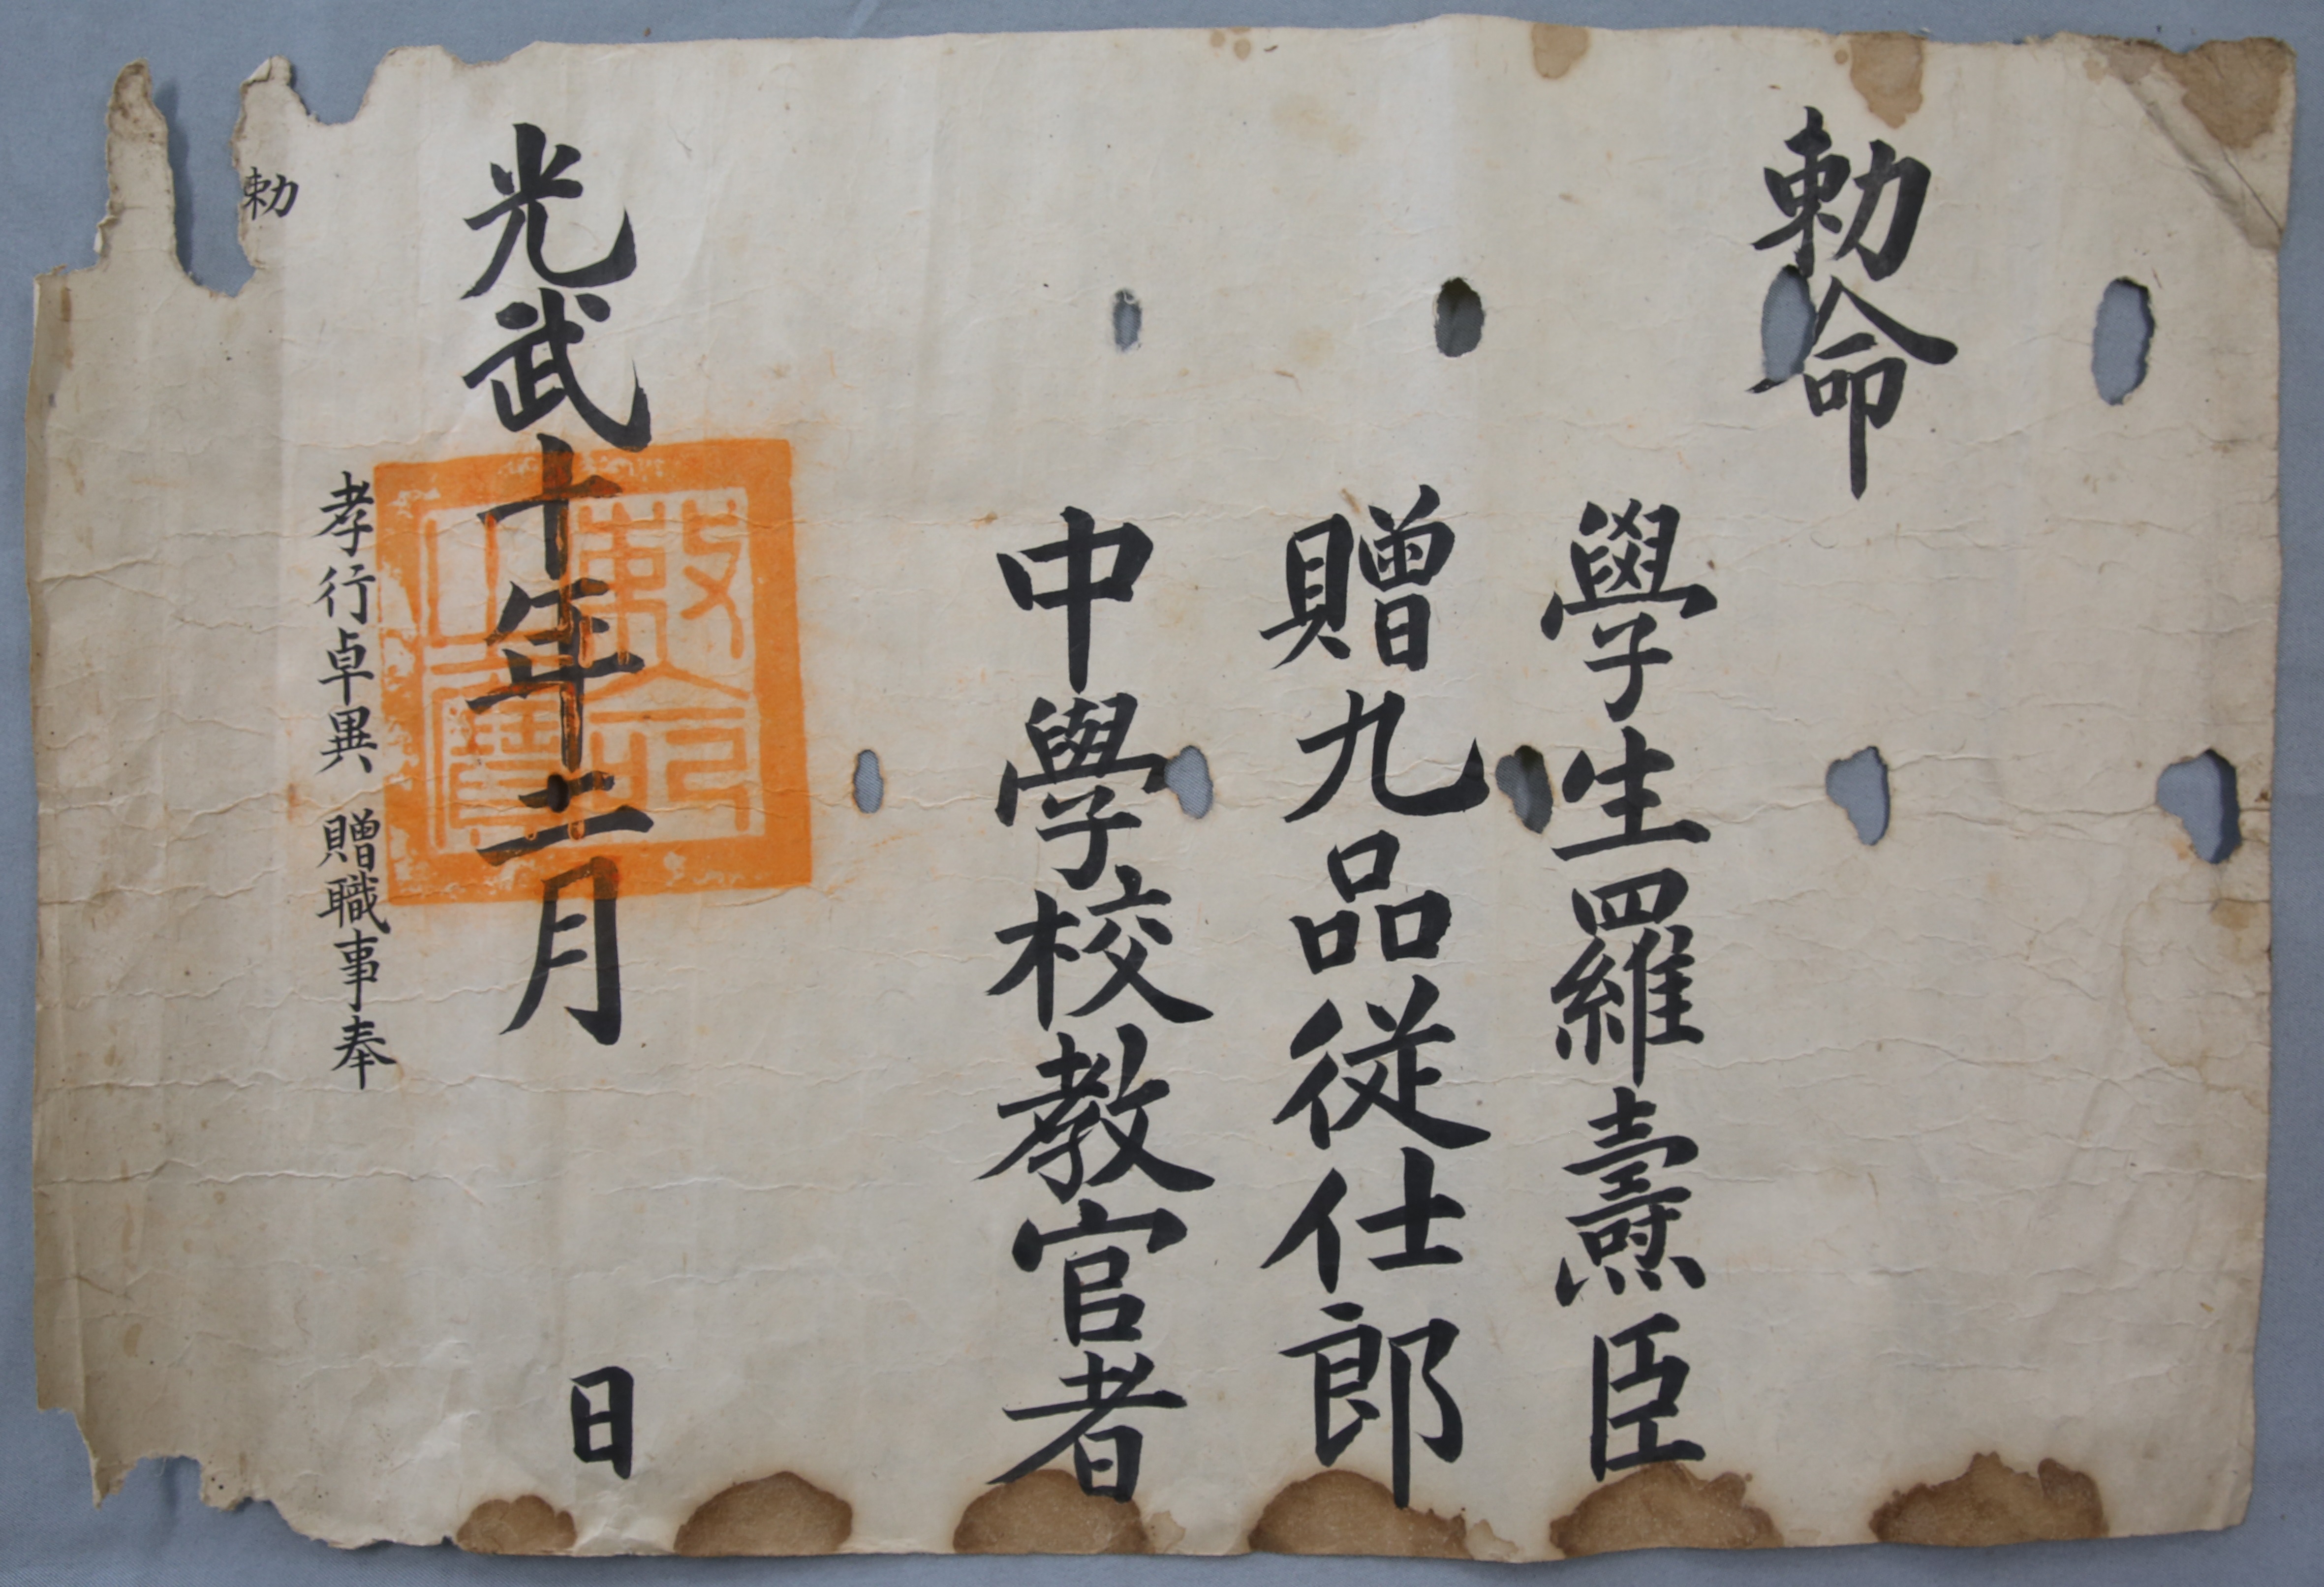 勅命
學生羅燾臣
贈九品従仕郎
中學校教官者
光武十年二月 日
孝行卓異 贈職事奉
勅
敕命之寶